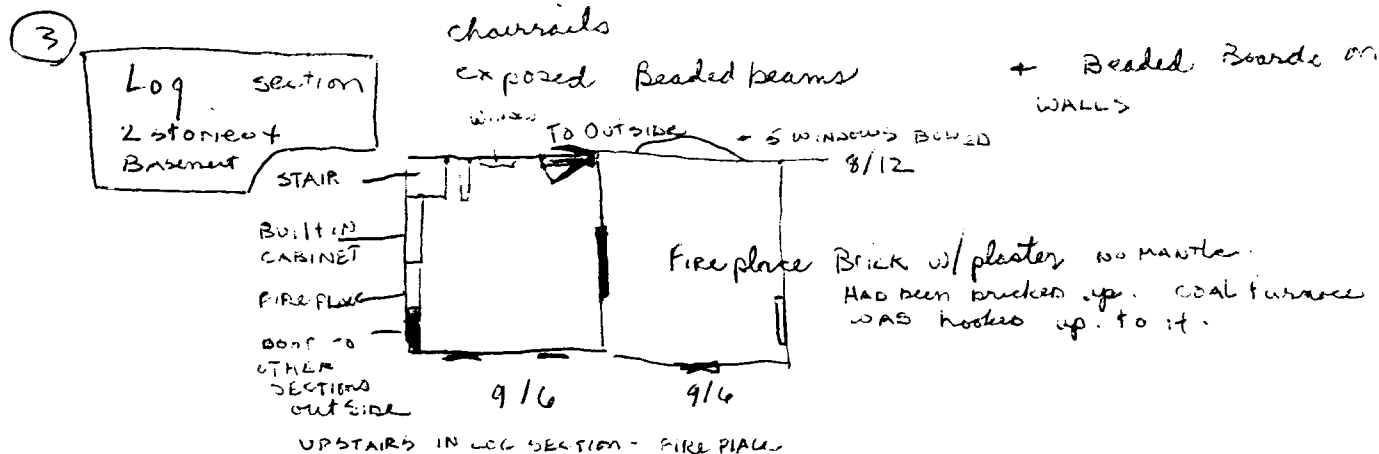 3
chairrails
Log section
2 stories +
Basement
exposed Beaded beams
+ Beaded Boards on
WALLS
WINDOW
TO OUTSIDE
5 WINDOWS BOWED
8/12
STAIR
BUILT IN
CABINET
FIREPLACE
DOOR TO
OTHER
SECTIONS
OUTSIDE
Fireplace Brick w/ plaster NO MANTLE.
HAD BEEN BRICKED up. COAL FURNACE
WAS HOOKED up. to it.
9/6
9/6
UPSTAIRS IN LOG SECTION - FIREPLACE